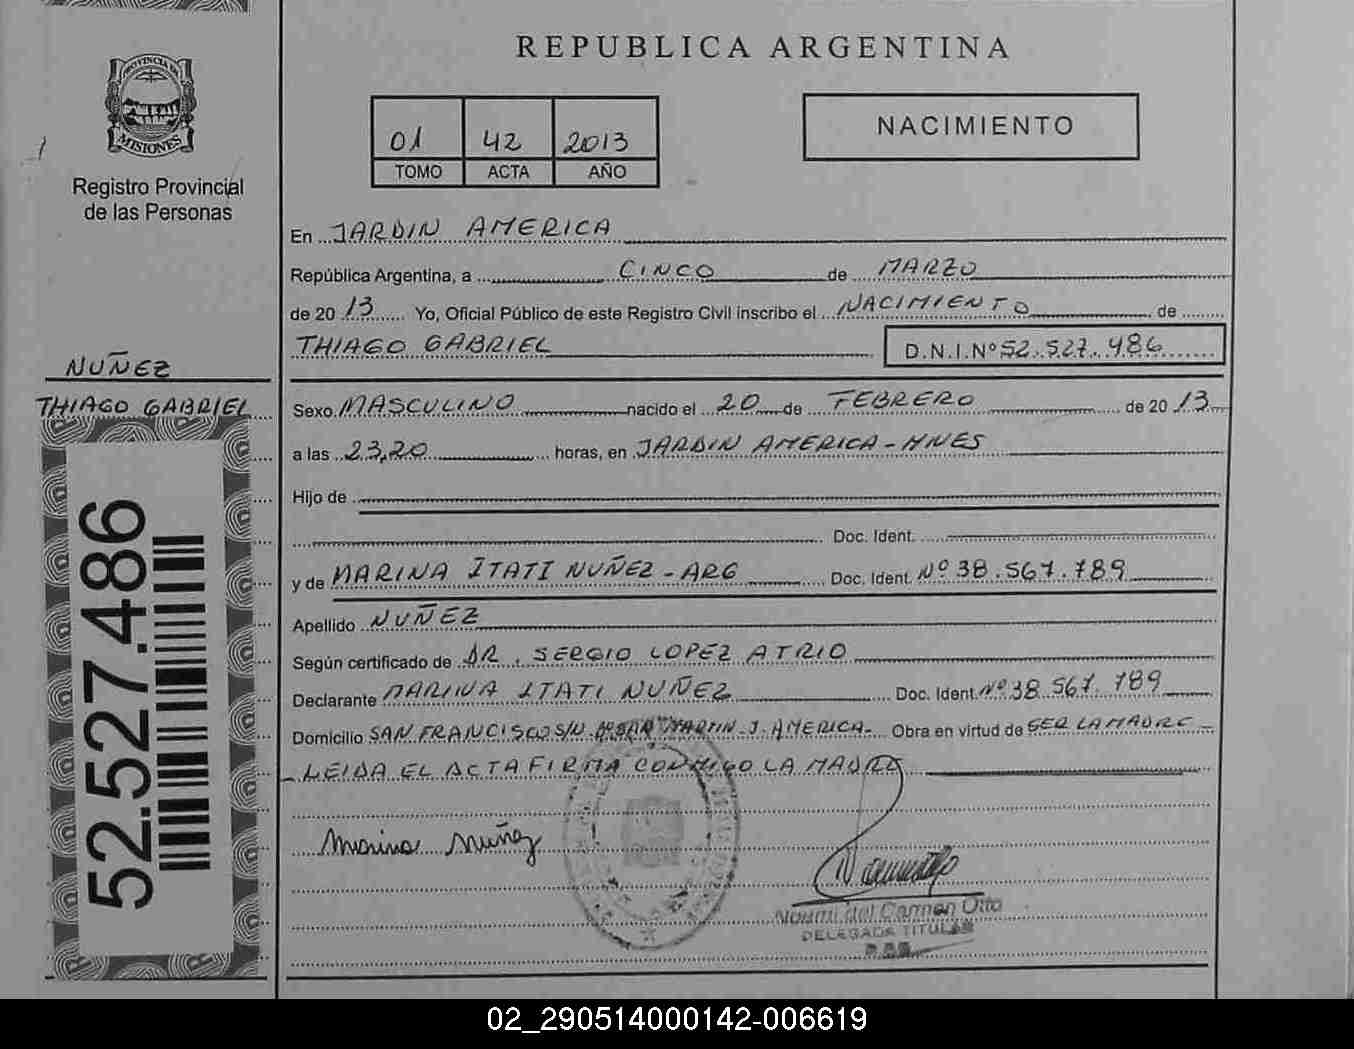 REPUBLICA ARGENTINA
PROVINCIA DE
MISIONES
Registro Provincial
de las Personas
01 42 2013
TOMO ACTA AÑO
NACIMIENTO
En JARDIN AMERICA
República Argentina, a CINCO de MARZO
de 20 13 Yo, Oficial Público de este Registro Civil inscribo el NACIMIENTO de
THIAGO GABRIEL D.N.I.Nº 52.527.486
NUÑEZ
THIAGO GABRIEL
52.527.486
Sexo MASCULINO nacido el 20 de FEBRERO de 20 13
a las 23,20 horas, en JARDIN AMERICA - MNES
Hijo de
Doc. Ident.
y de MARINA ITATI NUÑEZ - ARG Doc. Ident. Nº 38.567.789
Apellido NUÑEZ
Según certificado de DR. SERGIO LOPEZ ATRIO
Declarante MARINA ITATI NUÑEZ Doc. Ident. Nº 38.567.789
Domicilio SAN FRANCISCO S/N Bº SAN MARTIN - J. AMERICA - Obra en virtud de SER LA MADRE -
- LEIDA EL ACTA FIRMA CONMIGO LA MADRE
Marina Nuñez
Noemi del Carmen Otto
DELEGADA TITULAR
02_290514000142-006619